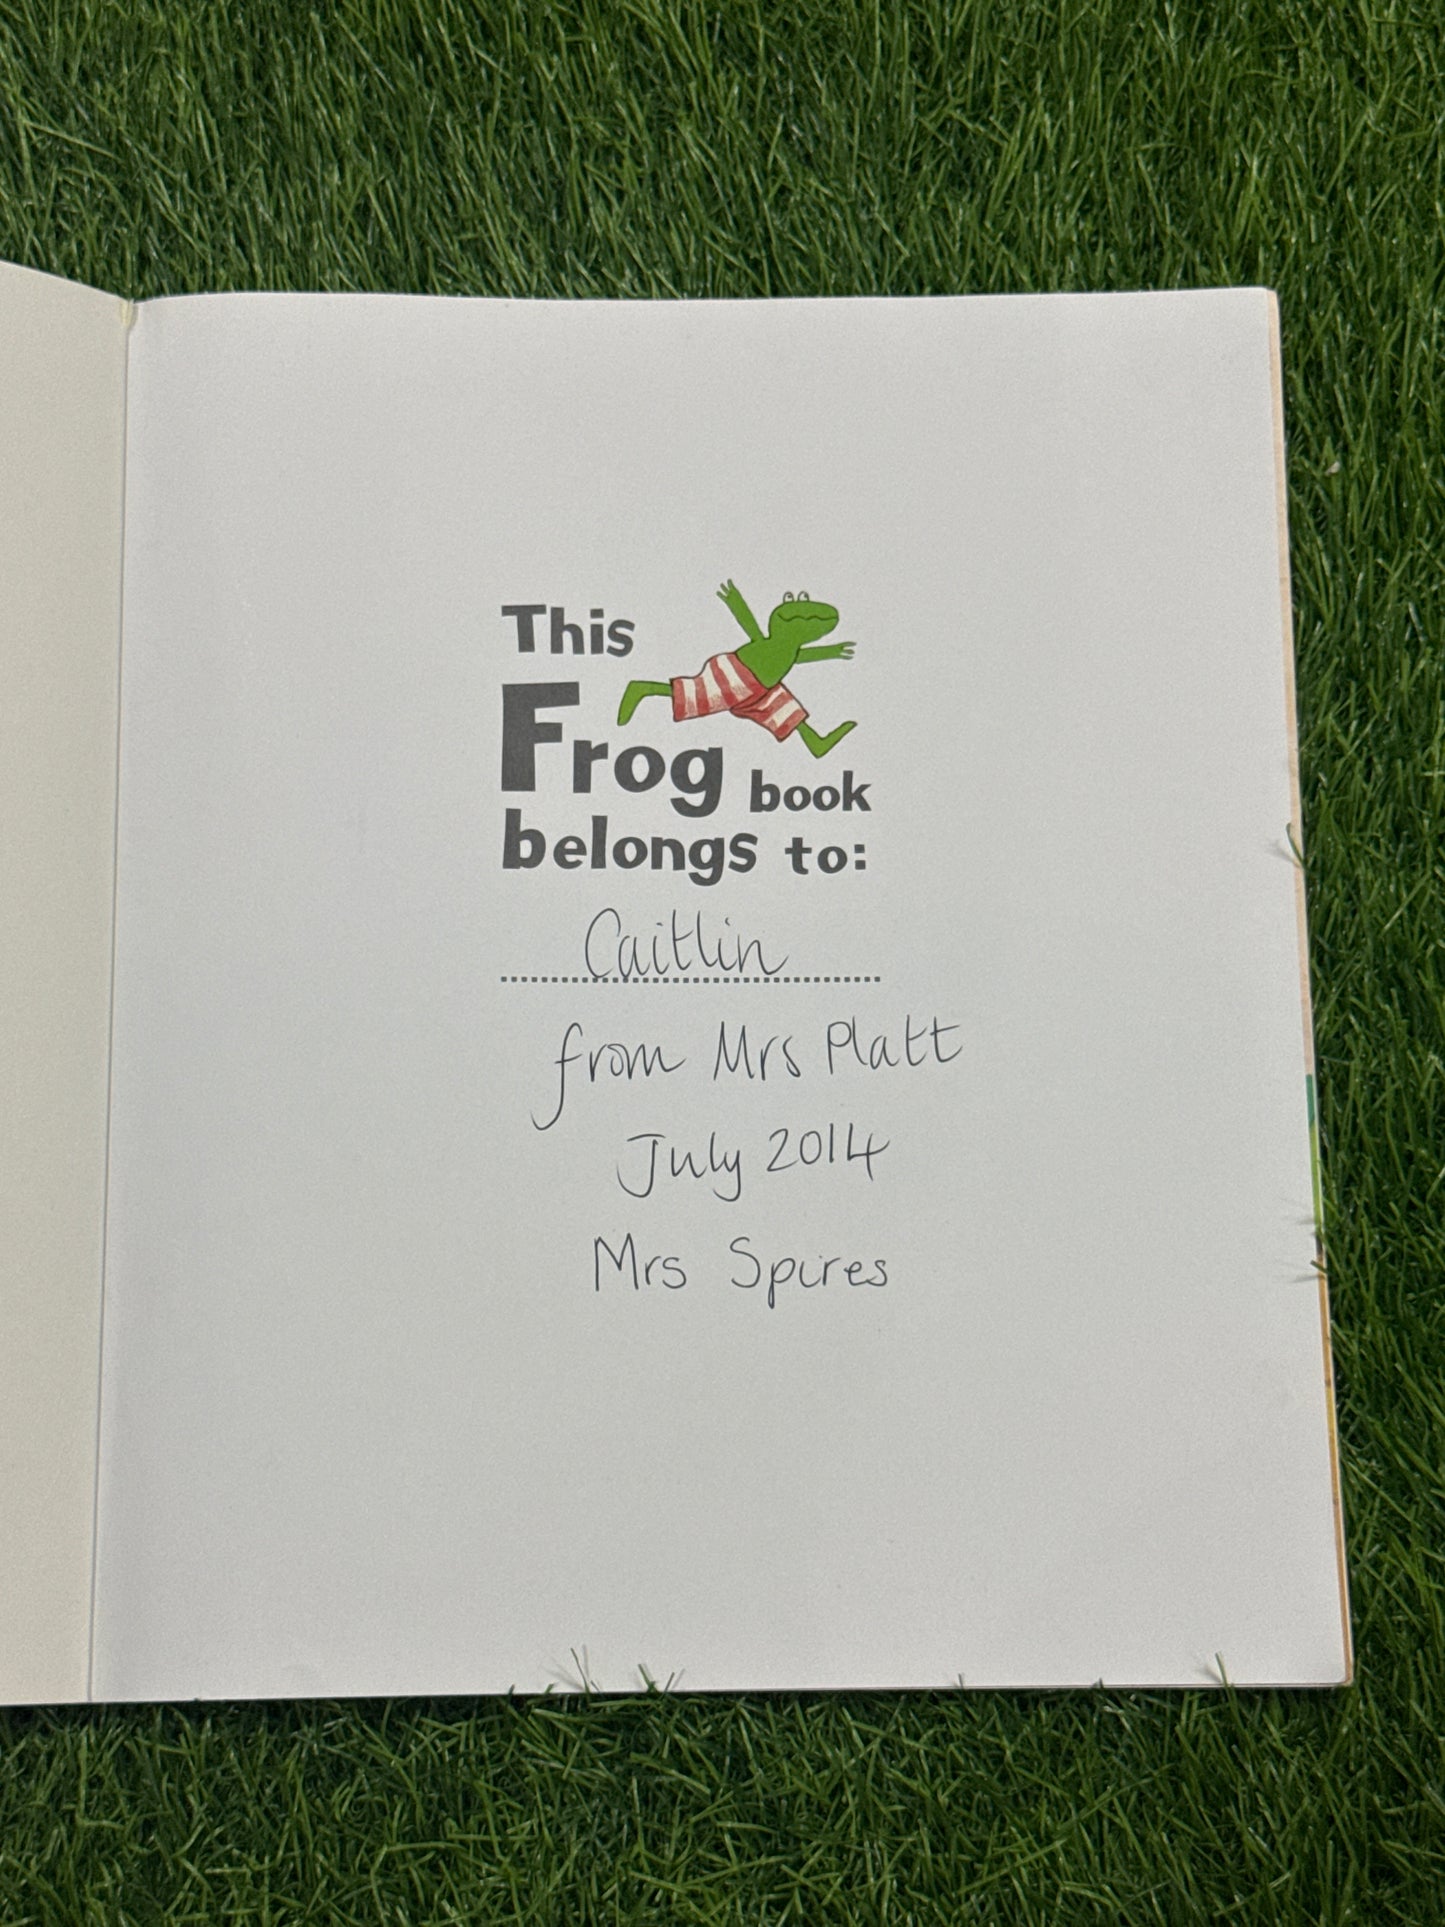 This
Frog book
belongs to:
Caitlin
from Mrs Platt
July 2014
Mrs Spires